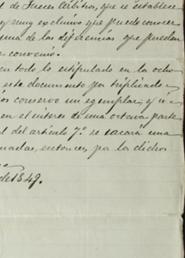 de Jueces Arbitros, que se establece
y muy exclusivo que puede conocer
una de las diferencias que puedan
convenio.
en todo lo estipulado en la ocho
este documento por triplicado
conserve un ejemplar, y
en el interes de una octava parte
del articulo 7º se sacará una
entonces por la dicha
de 1849.